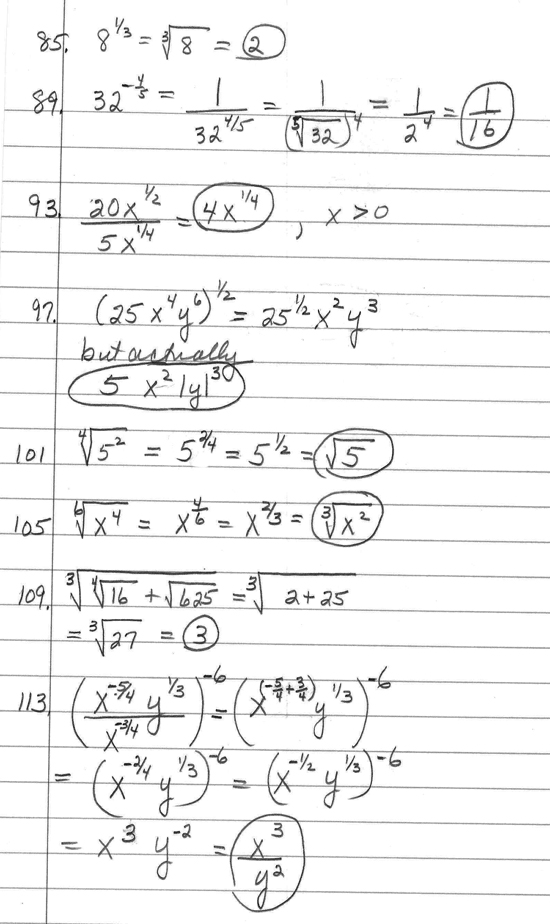 85. 8^{1/3} = ∛8 = 2
89. 32^{-4/5} = 1/32^{4/5} = 1/(⁵√32)^4 = 1/2^4 = 1/16
93. 20x^{1/2}/5x^{1/4} = 4x^{1/4}, x > 0
97. (25x^4y^6)^{1/2} = 25^{1/2}x^2y^3
but actually
5 x^2|y|^3
101 ⁴√5^2 = 5^{2/4} = 5^{1/2} = √5
105 ⁶√x^4 = x^{4/6} = x^{2/3} = ∛x^2
109. ∛(⁴√16 + √625) = ∛(2+25)
= ∛27 = 3
113. (x^{-5/4} y^{1/3}/x^{-3/4})^{-6} = (x^{(-5/4+3/4)} y^{1/3})^{-6}
= (x^{-2/4} y^{1/3})^{-6} = (x^{-1/2} y^{1/3})^{-6}
= x^3 y^{-2} = x^3/y^2